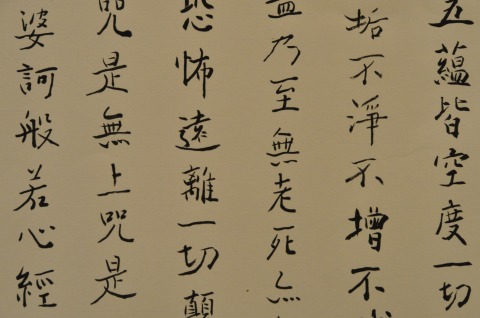 五蘊皆空度一切
垢不淨不增不
盡乃至無老死
恐怖遠離一切顛
咒是無上咒是
婆訶般若心經